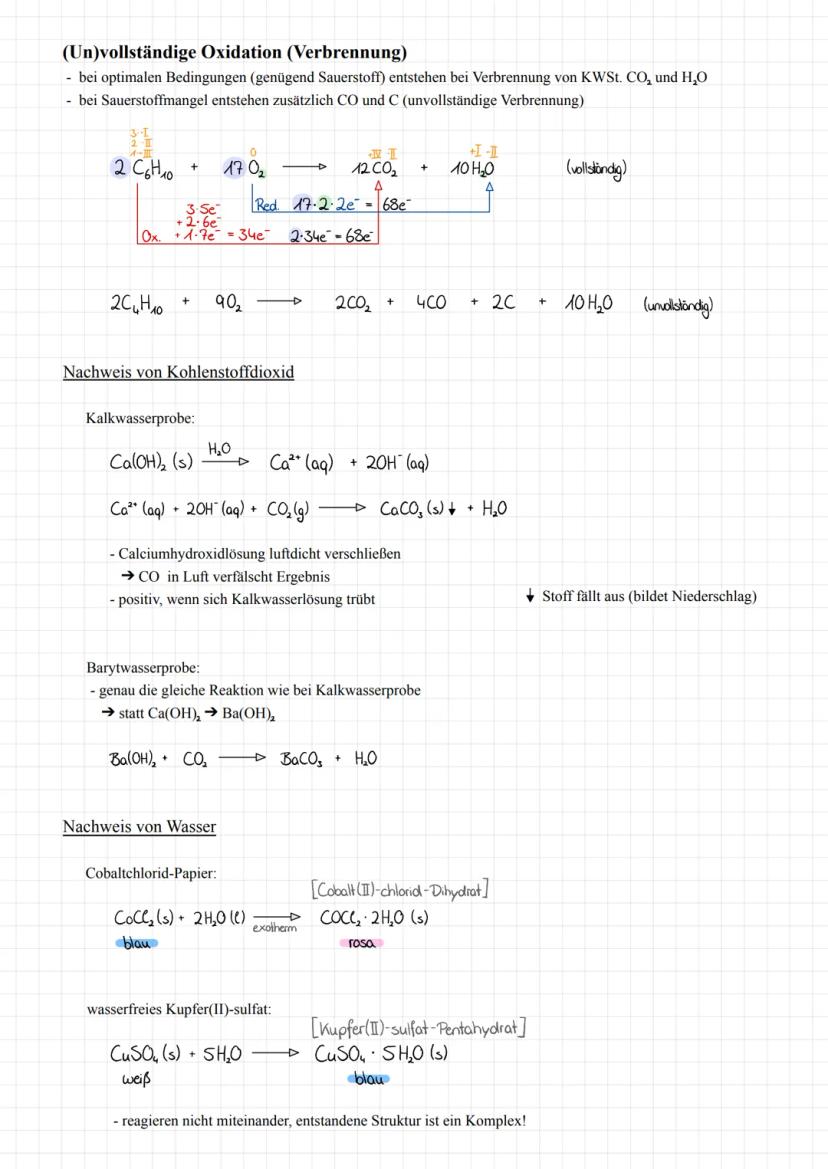 (Un)vollständige Oxidation (Verbrennung)
- bei optimalen Bedingungen (genügend Sauerstoff) entstehen bei Verbrennung von KWSt. CO₂ und H₂O
- bei Sauerstoffmangel entstehen zusätzlich CO und C (unvollständige Verbrennung)
3·-I
2·-II
1·-III
0
+IV -II
+I -II
2 C₆H₁₀ + 17 O₂ → 12CO₂ + 10H₂O (vollständig)
Red. 17·2·2e⁻ = 68e⁻
3·5e⁻
+ 2·6e⁻
Ox. + 1·7e⁻ = 34e⁻ 2·34e⁻ = 68e⁻
2C₄H₁₀ + 9O₂ → 2CO₂ + 4CO + 2C + 10H₂O (unvollständig)
Nachweis von Kohlenstoffdioxid
Kalkwasserprobe:
H₂O
Ca(OH)₂ (s) → Ca²⁺ (aq) + 2OH⁻ (aq)
Ca²⁺ (aq) + 2OH⁻ (aq) + CO₂ (g) → CaCO₃ (s)↓ + H₂O
- Calciumhydroxidlösung luftdicht verschließen
→ CO in Luft verfälscht Ergebnis
- positiv, wenn sich Kalkwasserlösung trübt
↓ Stoff fällt aus (bildet Niederschlag)
Barytwasserprobe:
- genau die gleiche Reaktion wie bei Kalkwasserprobe
→ statt Ca(OH)₂ → Ba(OH)₂
Ba(OH)₂ + CO₂ → BaCO₃ + H₂O
Nachweis von Wasser
Cobaltchlorid-Papier:
[Cobalt(II)-chlorid-Dihydrat]
CoCl₂ (s) + 2H₂O (l) → COCl₂ · 2H₂O (s)
exotherm
blau rosa
wasserfreies Kupfer(II)-sulfat:
[Kupfer(II)-sulfat-Pentahydrat]
CuSO₄ (s) + 5H₂O → CuSO₄ · 5H₂O (s)
weiß blau
- reagieren nicht miteinander, entstandene Struktur ist ein Komplex!